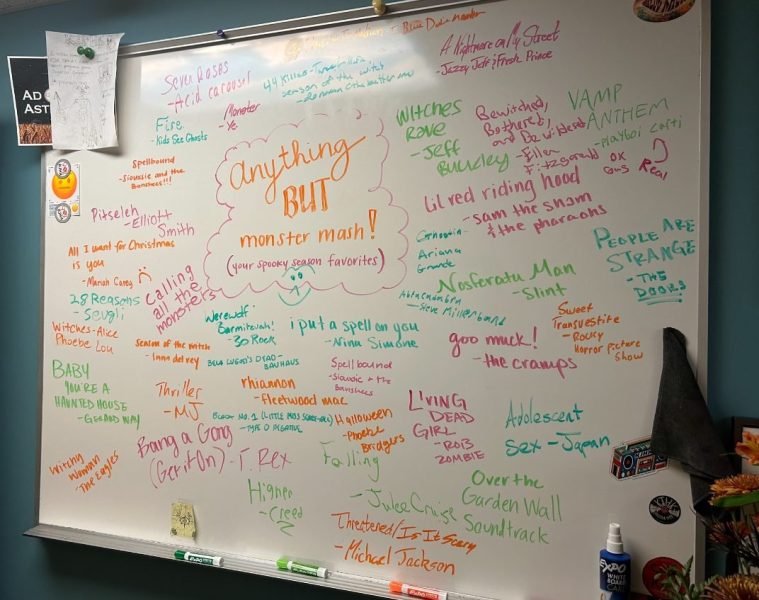 AD
AST
Seven Roses
- Acid carousel
season of the witch
A Nightmare on My Street
- Jazzy Jeff & Fresh Prince
Fire
- Kids See Ghosts
Monster
- Ye
Spellbound
- Siouxsie and the
Banshees!!!
anything
BUT
monster mash!
(your spooky season favorites)
WITCHES
RAVE
- JEFF
BUCKLEY
Bewitched,
Bothered,
and Bewildered
- Ellen
Fitzgerald
VAMP
ANTHEM
- playboi carti
OK
Real
Pitseleh
- Elliott
Smith
Lil red riding hood
- Sam the sham
& the pharaohs
All I want for Christmas
is you
- Mariah Carey
Calling
all the
monsters
Ariana
Grande
PEOPLE ARE
STRANGE
- THE
DOORS
28 Reasons
- Seulgi
Nosferatu Man
- Slint
Abracadabra
- Steve Miller band
Witches - Alice
Phoebe Lou
Season of the witch
- lana del rey
Werewolf
Barmitzvah!
- 30 Rock
i put a spell on you
- Nina Simone
goo muck!
- the cramps
Sweet
Transvestite
- Rocky
Horror Picture
Show
BELA LUGOSI'S DEAD -
BAUHAUS
Spellbound
- Siouxsie & the
Banshees
BABY
YOU'RE A
HAUNTED HOUSE
- GERARD WAY
Thriller
- MJ
rhiannon
- fleetwood mac
BLACK NO. 1 (LITTLE MISS SCARE-ALL)
- TYPE O NEGATIVE
Halloween
- Phoebe
Bridgers
LIVING
DEAD
GIRL
- ROB
ZOMBIE
Adolescent
Sex - Japan
Bang a Gong
(Get it On) - T. Rex
Witchy
Woman
The Eagles
Falling
- Julee Cruise
Higher
- Creed
Over the
Garden Wall
Soundtrack
Threatened/Is It Scary
- Michael Jackson
EXPO
WHITE
BOARD
CARE